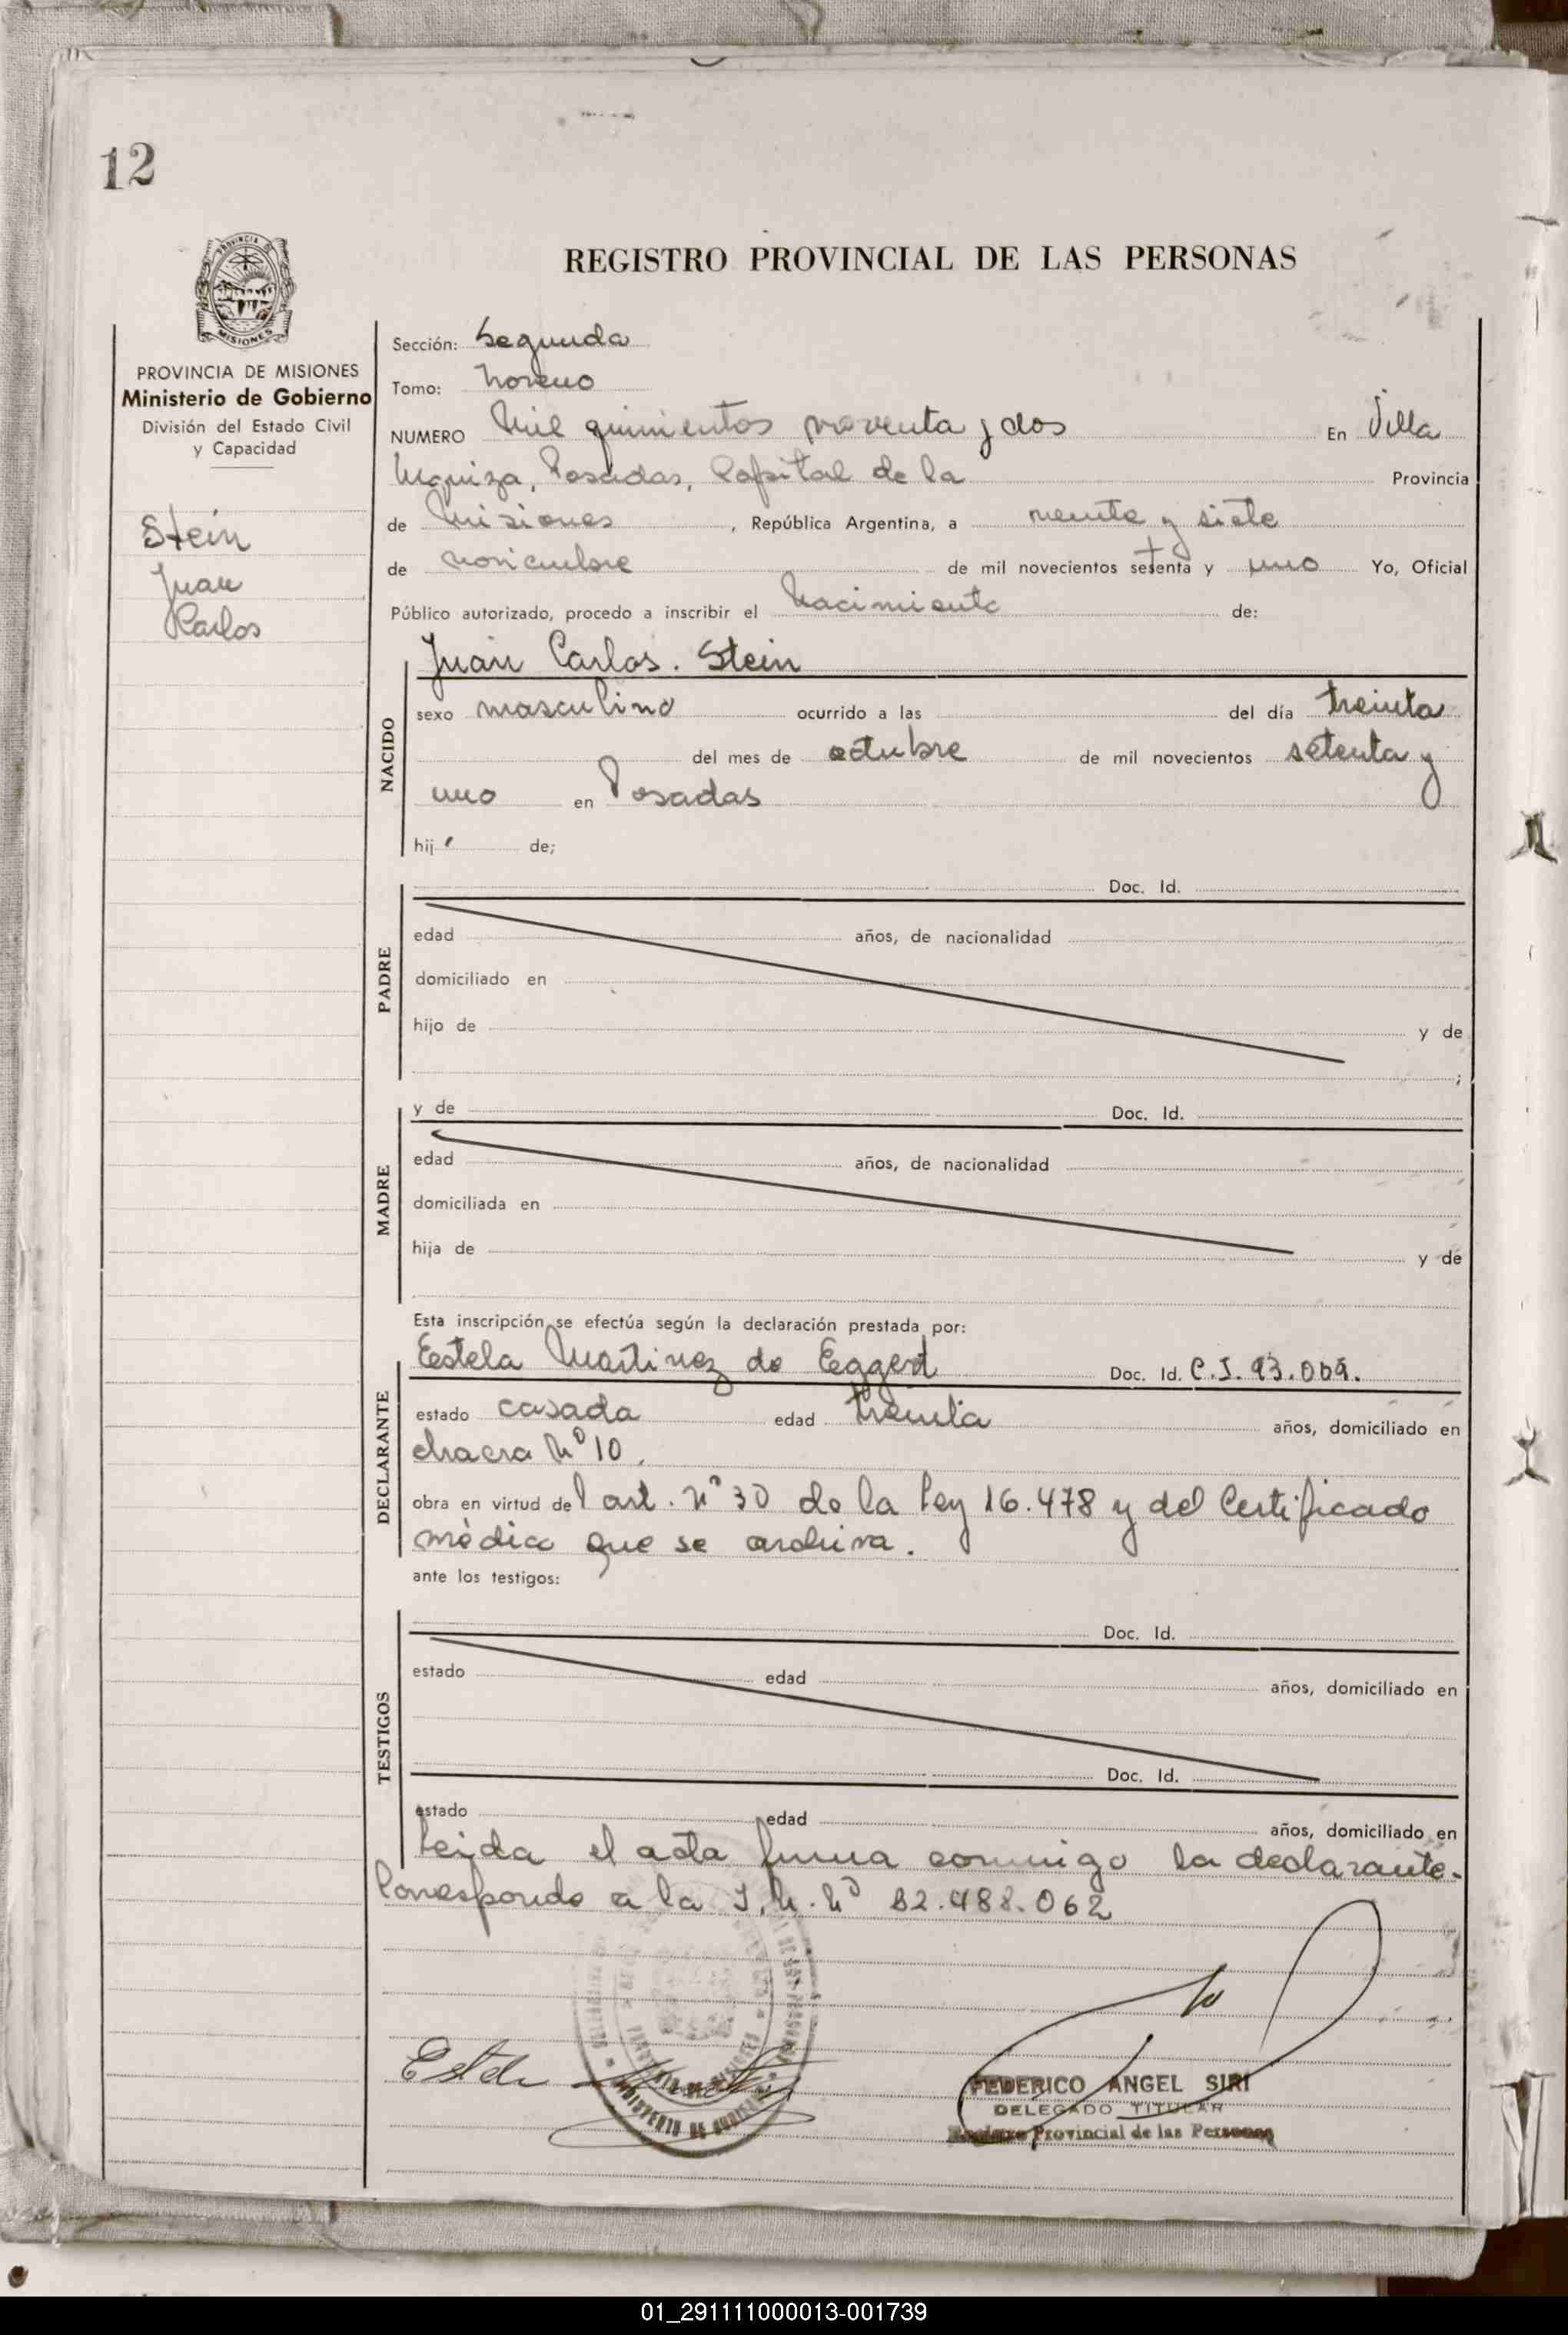 12
REGISTRO PROVINCIAL DE LAS PERSONAS
MISIONES
PROVINCIA DE MISIONES
Ministerio de Gobierno
División del Estado Civil
y Capacidad
Stein
Juan
Carlos
Sección: Segunda
Tomo: Noveno
NUMERO Mil quinientos noventa y dos En Villa
Urquiza, Posadas, Capital de la Provincia
de Misiones, República Argentina, a veinte y siete
de noviembre de mil novecientos setenta y uno Yo, Oficial
Público autorizado, procedo a inscribir el Nacimiento de:
NACIDO
Juan Carlos. Stein
sexo masculino ocurrido a las del día treinta
del mes de octubre de mil novecientos setenta y
uno en Posadas
hij de;
PADRE
Doc. Id.
edad años, de nacionalidad
domiciliado en
hijo de y de
;
MADRE
y de Doc. Id.
edad años, de nacionalidad
domiciliada en
hija de y de
Esta inscripción se efectúa según la declaración prestada por:
DECLARANTE
Estela Martinez de Eggert Doc. Id. C.I. 93.009.
estado casada edad treinta años, domiciliado en
chacra Nº 10.
obra en virtud del art. nº 30 de la Ley 16.478 y del Certificado
médico que se archiva.
ante los testigos:
TESTIGOS
Doc. Id.
estado edad años, domiciliado en
Doc. Id.
estado edad años, domiciliado en
Leida el acta firma conmigo la declarante.
Corresponde a la Nº 12.488.062
FEDERICO ANGEL SIRI
DELEGADO TITULAR
Registro Provincial de las Personas
01_291111000013-001739